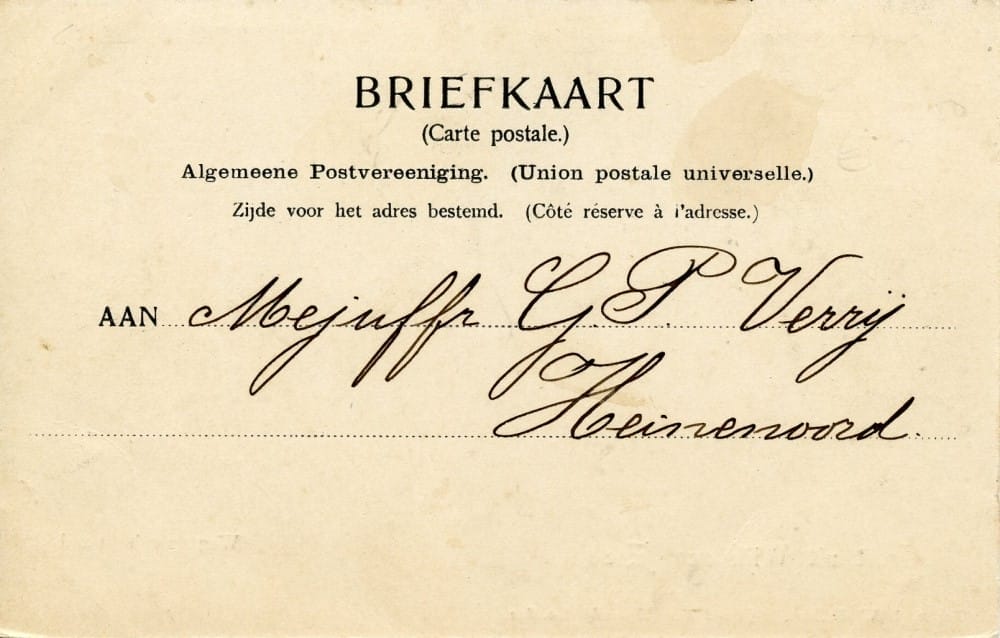 BRIEFKAART
(Carte postale.)
Algemeene Postvereeniging. (Union postale universelle.)
Zijde voor het adres bestemd. (Côté réserve à l'adresse.)
AAN Mejuffr G. P. Verrij
Heinenoord.